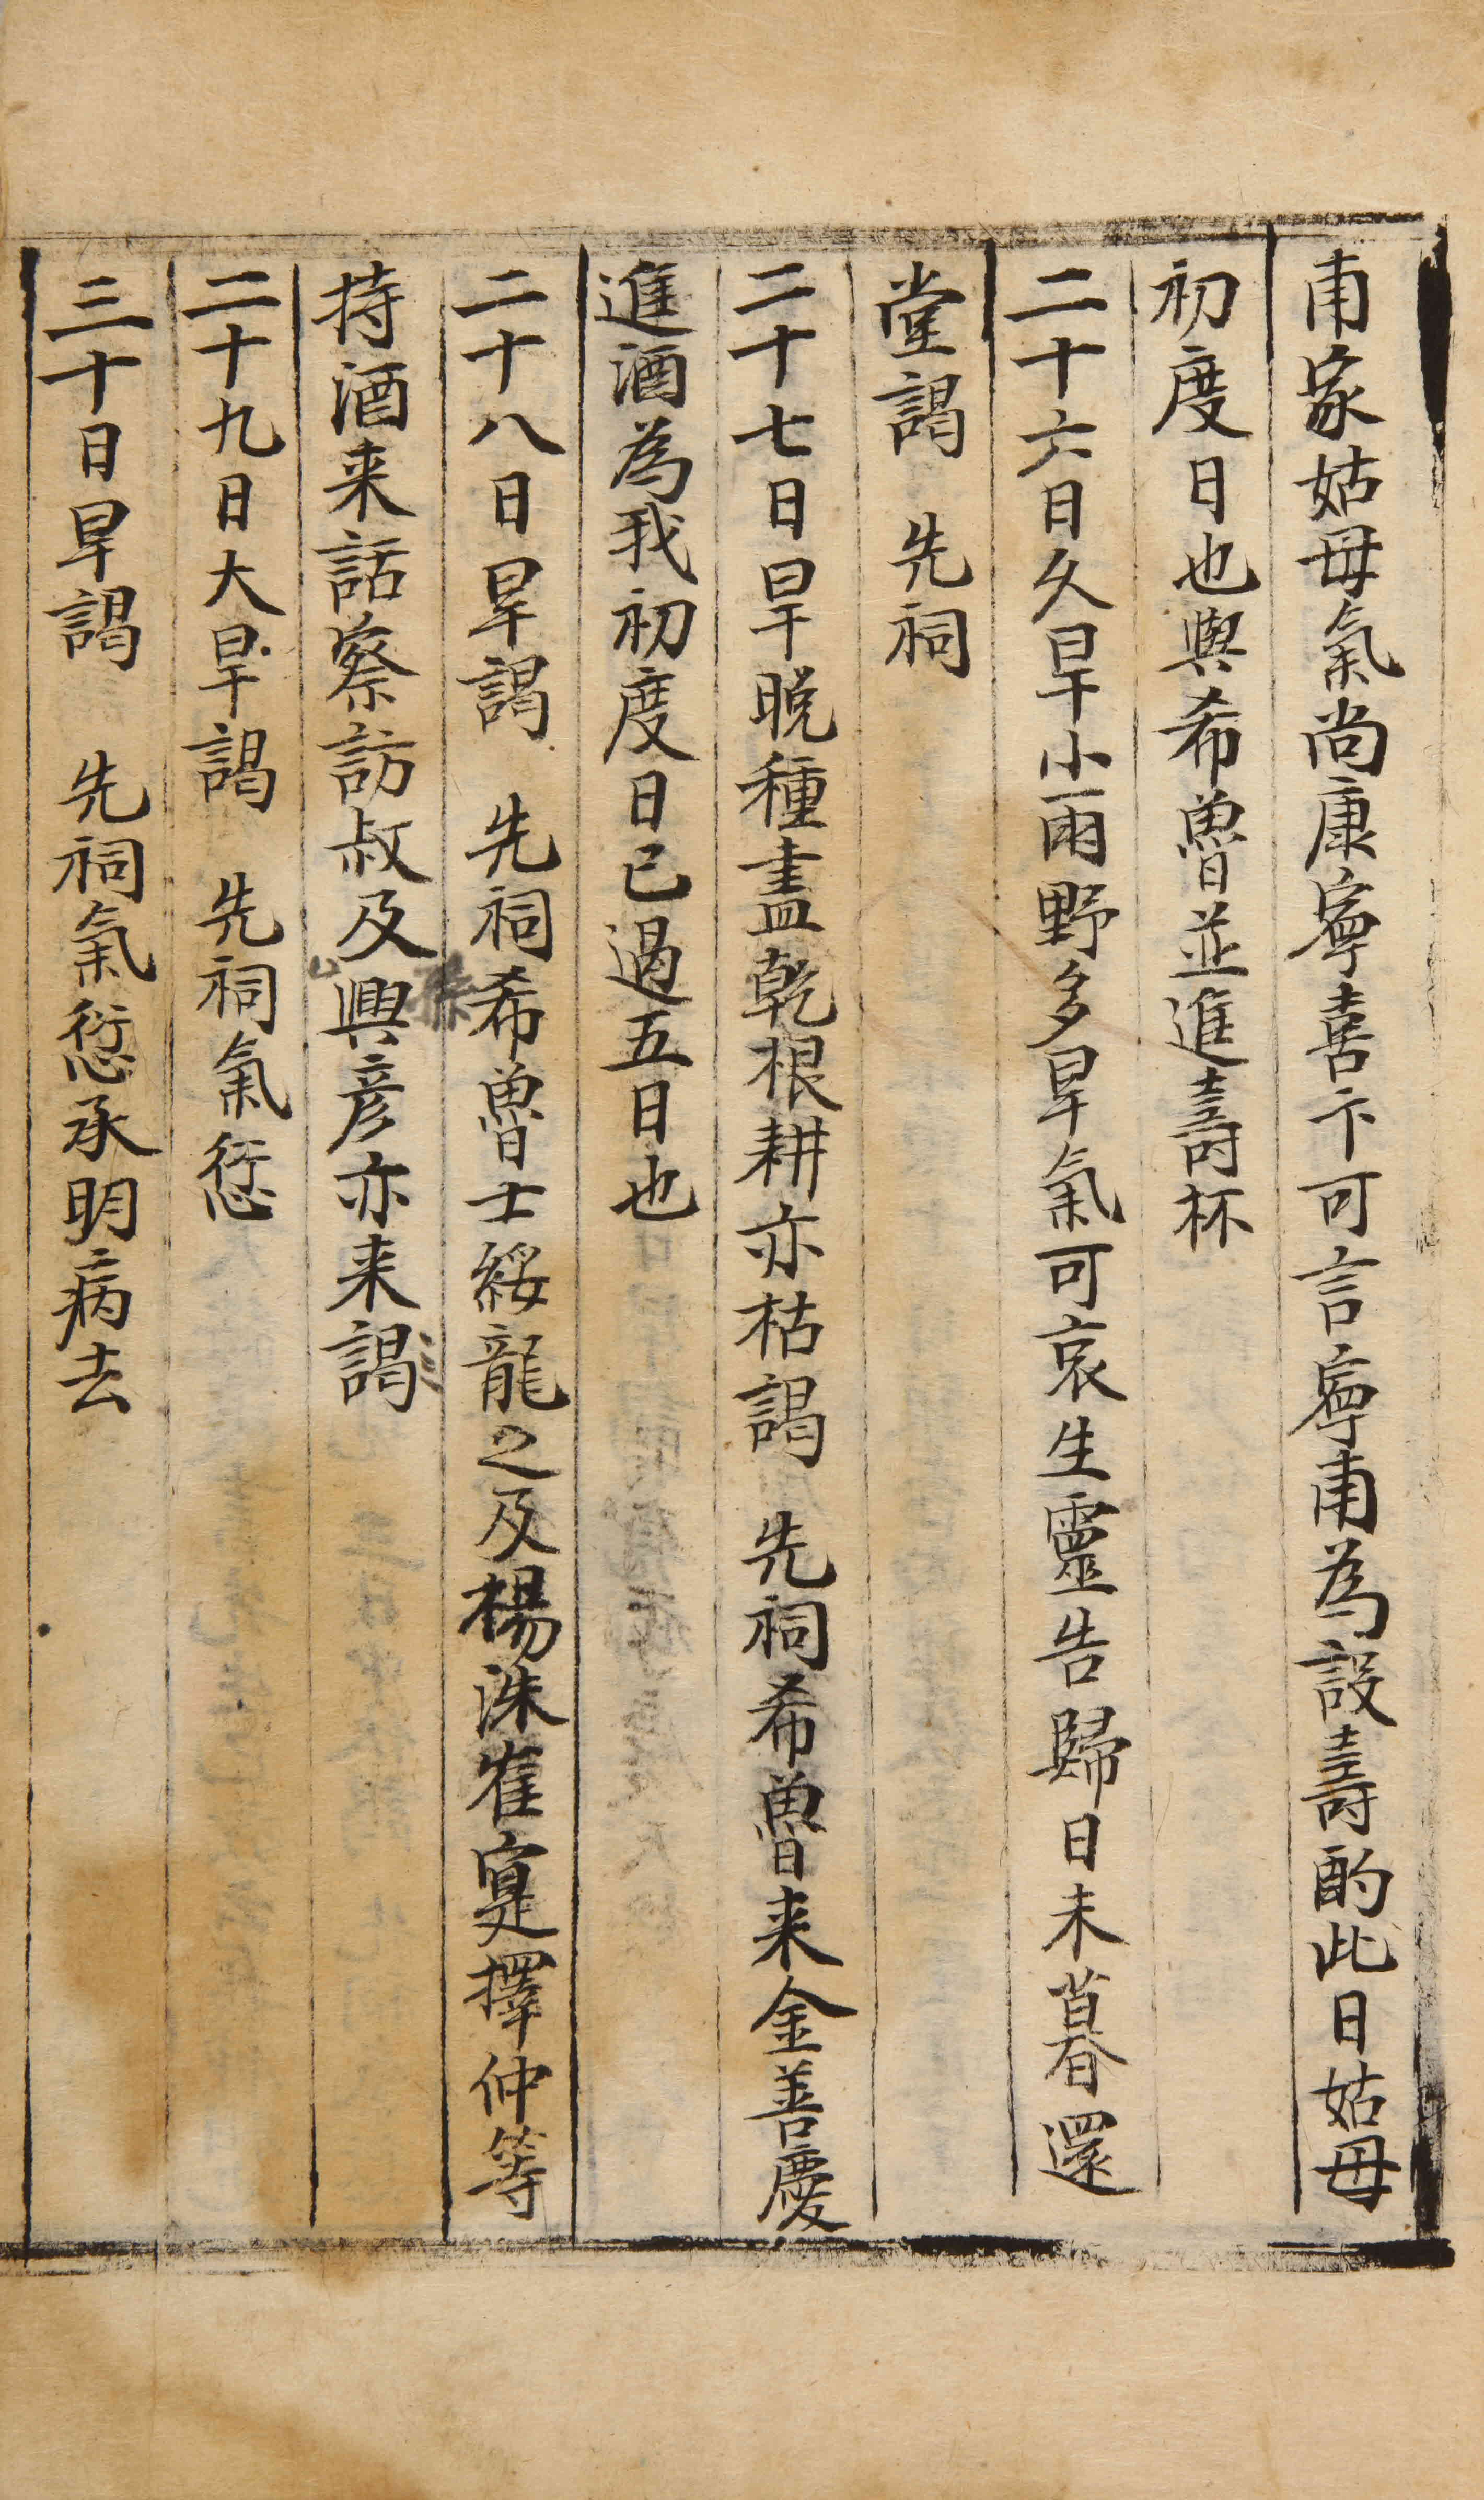 甫家姑母氣尚康寧喜卞可言寧甫為設壽酌此日姑母
初度日也與希魯並進壽杯
二十六日久旱小雨野多旱氣可哀生靈告歸日未暮還
堂謁　先祠
二十七日旱晩種盡乾根耕亦枯謁　先祠希魯来金善慶
進酒為我初度日已過五日也
二十八日旱謁　先祠希魯士綏龍之及楊洙崔寔擇仲等
持酒来話察訪叔及興彦亦来謁
二十九日大旱謁　先祠氣愆
三十日旱謁　先祠氣愆承明病去